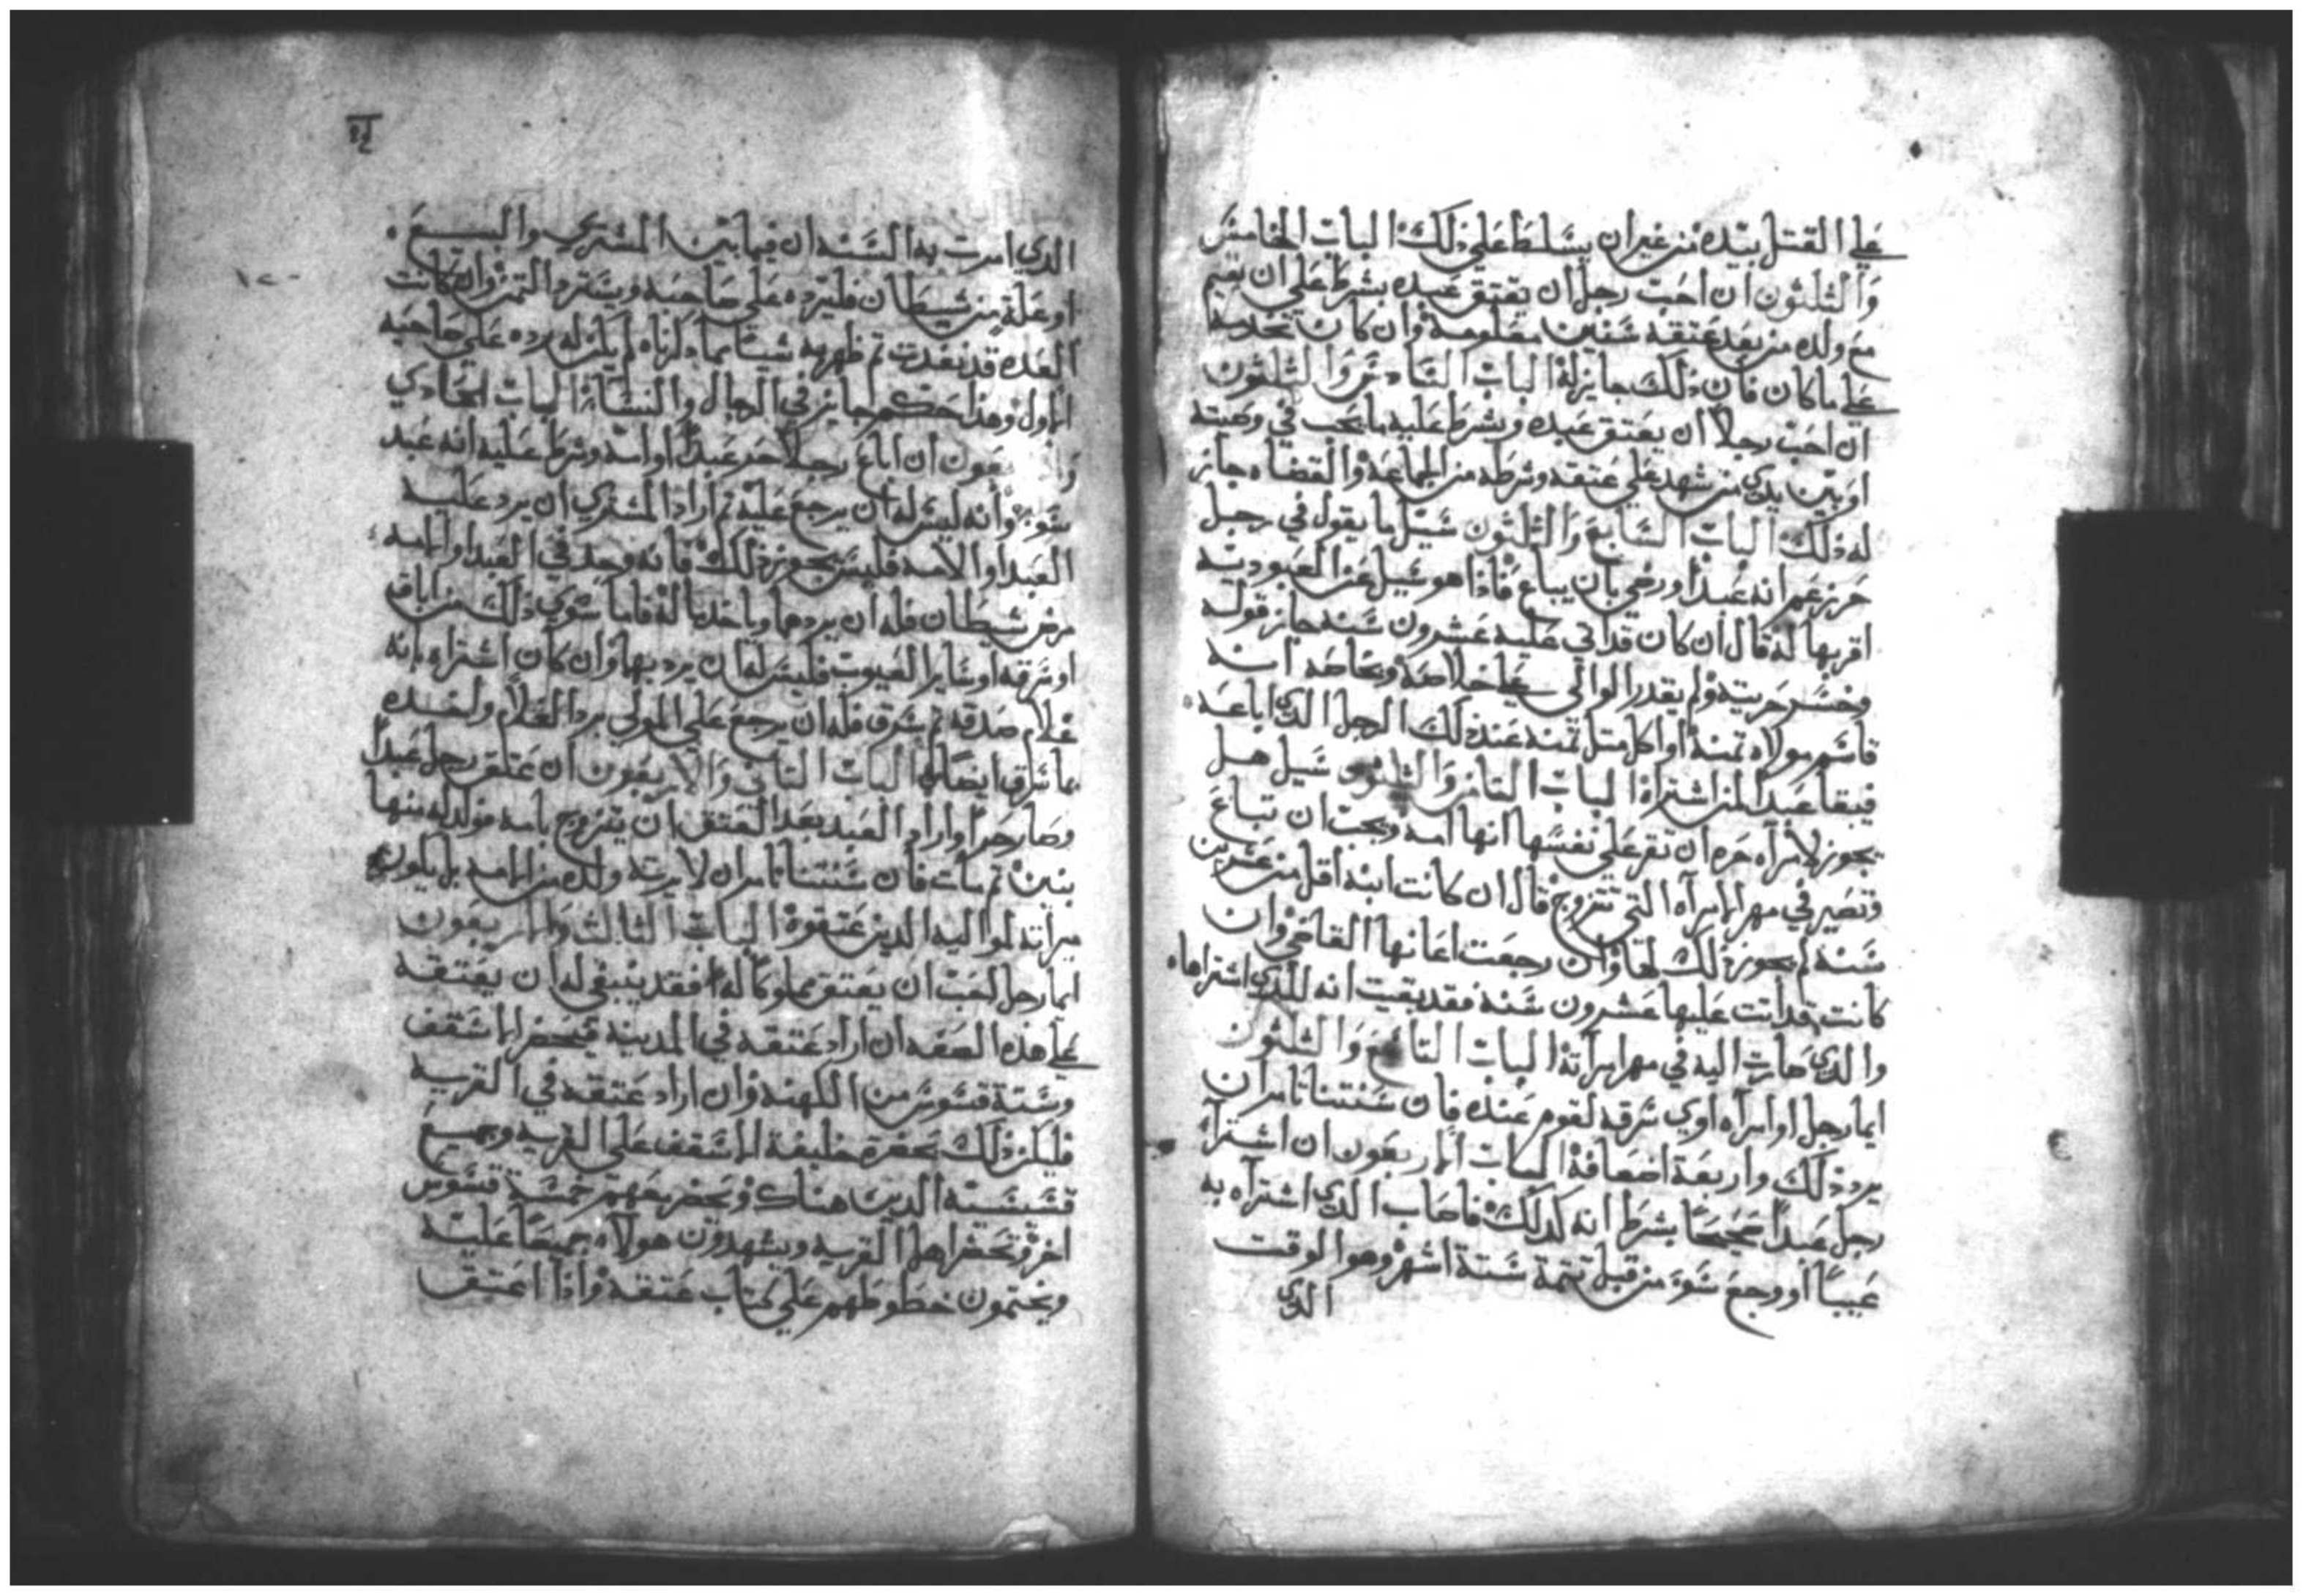 علي القتل بيده من غير ان يسلط علي ذلك الباب الخامس
والثلثون ان احب رجل ان يعتق عبده بشرط علي ان يقيم
مع ولده من بعد عتقه سنين معلومه وان كان تخدمه
علي ما كان فان ذلك جايز له الباب السادس والثلثون
ان احب رجلاً ان يعتق عبده ويشرط عليه ما يحب في وصيته
او بين يدي من شهد علي عتقه وشرطه من الجماعة والقضاه جاز
له ذلك الباب السابع والثلثون سيل ما يقول في رجل
حر زعم انه عبداً ورضي بان يباع فاذا هو سيل عن العبوديته
اقر بها له قال ان كان قد اتي عليه عشرون سنه جاز قوله
وخسر حريته ولم يقدر الوالي علي خلاصه وبخاصه انه
قاسم مولاه ثمنه او اكل مثل ثمنه عند ذلك الرجل الذي اباعه
فيبقا عبداً لمن اشتراه الباب الثامن والثلثون سيل هل
يجوز لامراه حره ان تقر علي نفسها انها امه ويجب ان تباع
وتصير في مهر الامراه التي تتزوج قال ان كانت ابنه اقل من عشرين
سنه لم يجوز ذلك لها وان رجعت اعانها القاضي وان
كانت قد اتت عليها عشرون سنه فقد بقيت انه للذي اشتراها
والذي صارت اليه في مهر امراته الباب التاسع والثلثون
ايما رجل او امراه اوي سرقه لقوم عنده فان سنتنا تامر ان
يرد ذلك واربعة اضعافه الباب الاربعون ان اشترا
رجل عبداً صحيحاً بشرط انه كذلك فاصاب الذي اشتراه به
عيباً او وجع سوء من قبل تتمة ستة اشهر وهو الوقت
الذي
الذي امرت به السنه ان فيما بين المشتري والبيع
او علة من شيطان فليرده علي صاحبه ويسترد الثمن وان كانت
العده قد نفدت ثم ظهر به شيئا مما ذكرناه لم يكن له رده علي صاحبه
الاول وهذا حكم جايز في الرجال والنساء الباب الحادي
والاربعون ان اباع رجلاً حر عبداً او امه وشرط عليه انه عبد
سوء وانه ليس له ان يرجع عليه ثم اراد المشتري ان يرد عليه
العبد او الامه فليس يجوز ذلك فانه وجد في العبد او الامه
مرض شيطان فله ان يردهما وياخذ ماله فاما سوي ذلك من اباق
او سرقه او ساير العيوب فليس له ان يرد بها وان كان اشتراه بانه
غلام صدقه ثم سرق فله ان يرجع علي المولي برد الغلام
ما سرق ايضا الباب الثاني والاربعون ان عتق رجل عبداً
وصار حراً واراد العبد بعد العتق ان يتزوج بامه فولد له منها
بنين ثم مات فان سنتنا تامر ان لا يرثه ولده من الامه بل يكون
ميراثه لمواليه الذين عتقوه الباب الثالث والاربعون
ايما رجل احب ان يعتق مملوكاً له فقد ينبغي له ان يعتقه
علي هذه الصفه ان اراد عتقه في المدينه فيحضر الاسقف
وستة قسوس من الكهنه وان اراد عتقه في القريه
فليكن ذلك بحضرة خليفة الاسقف علي القريه وجميع
قسيسيه الذين هناك ويحضر معهم خمسة قسوس
اخر وتحضر اهل القريه ويشهدون هولاء جميعاً عليه
ويختمون خطوطهم علي كتاب عتقه واذا اعتق